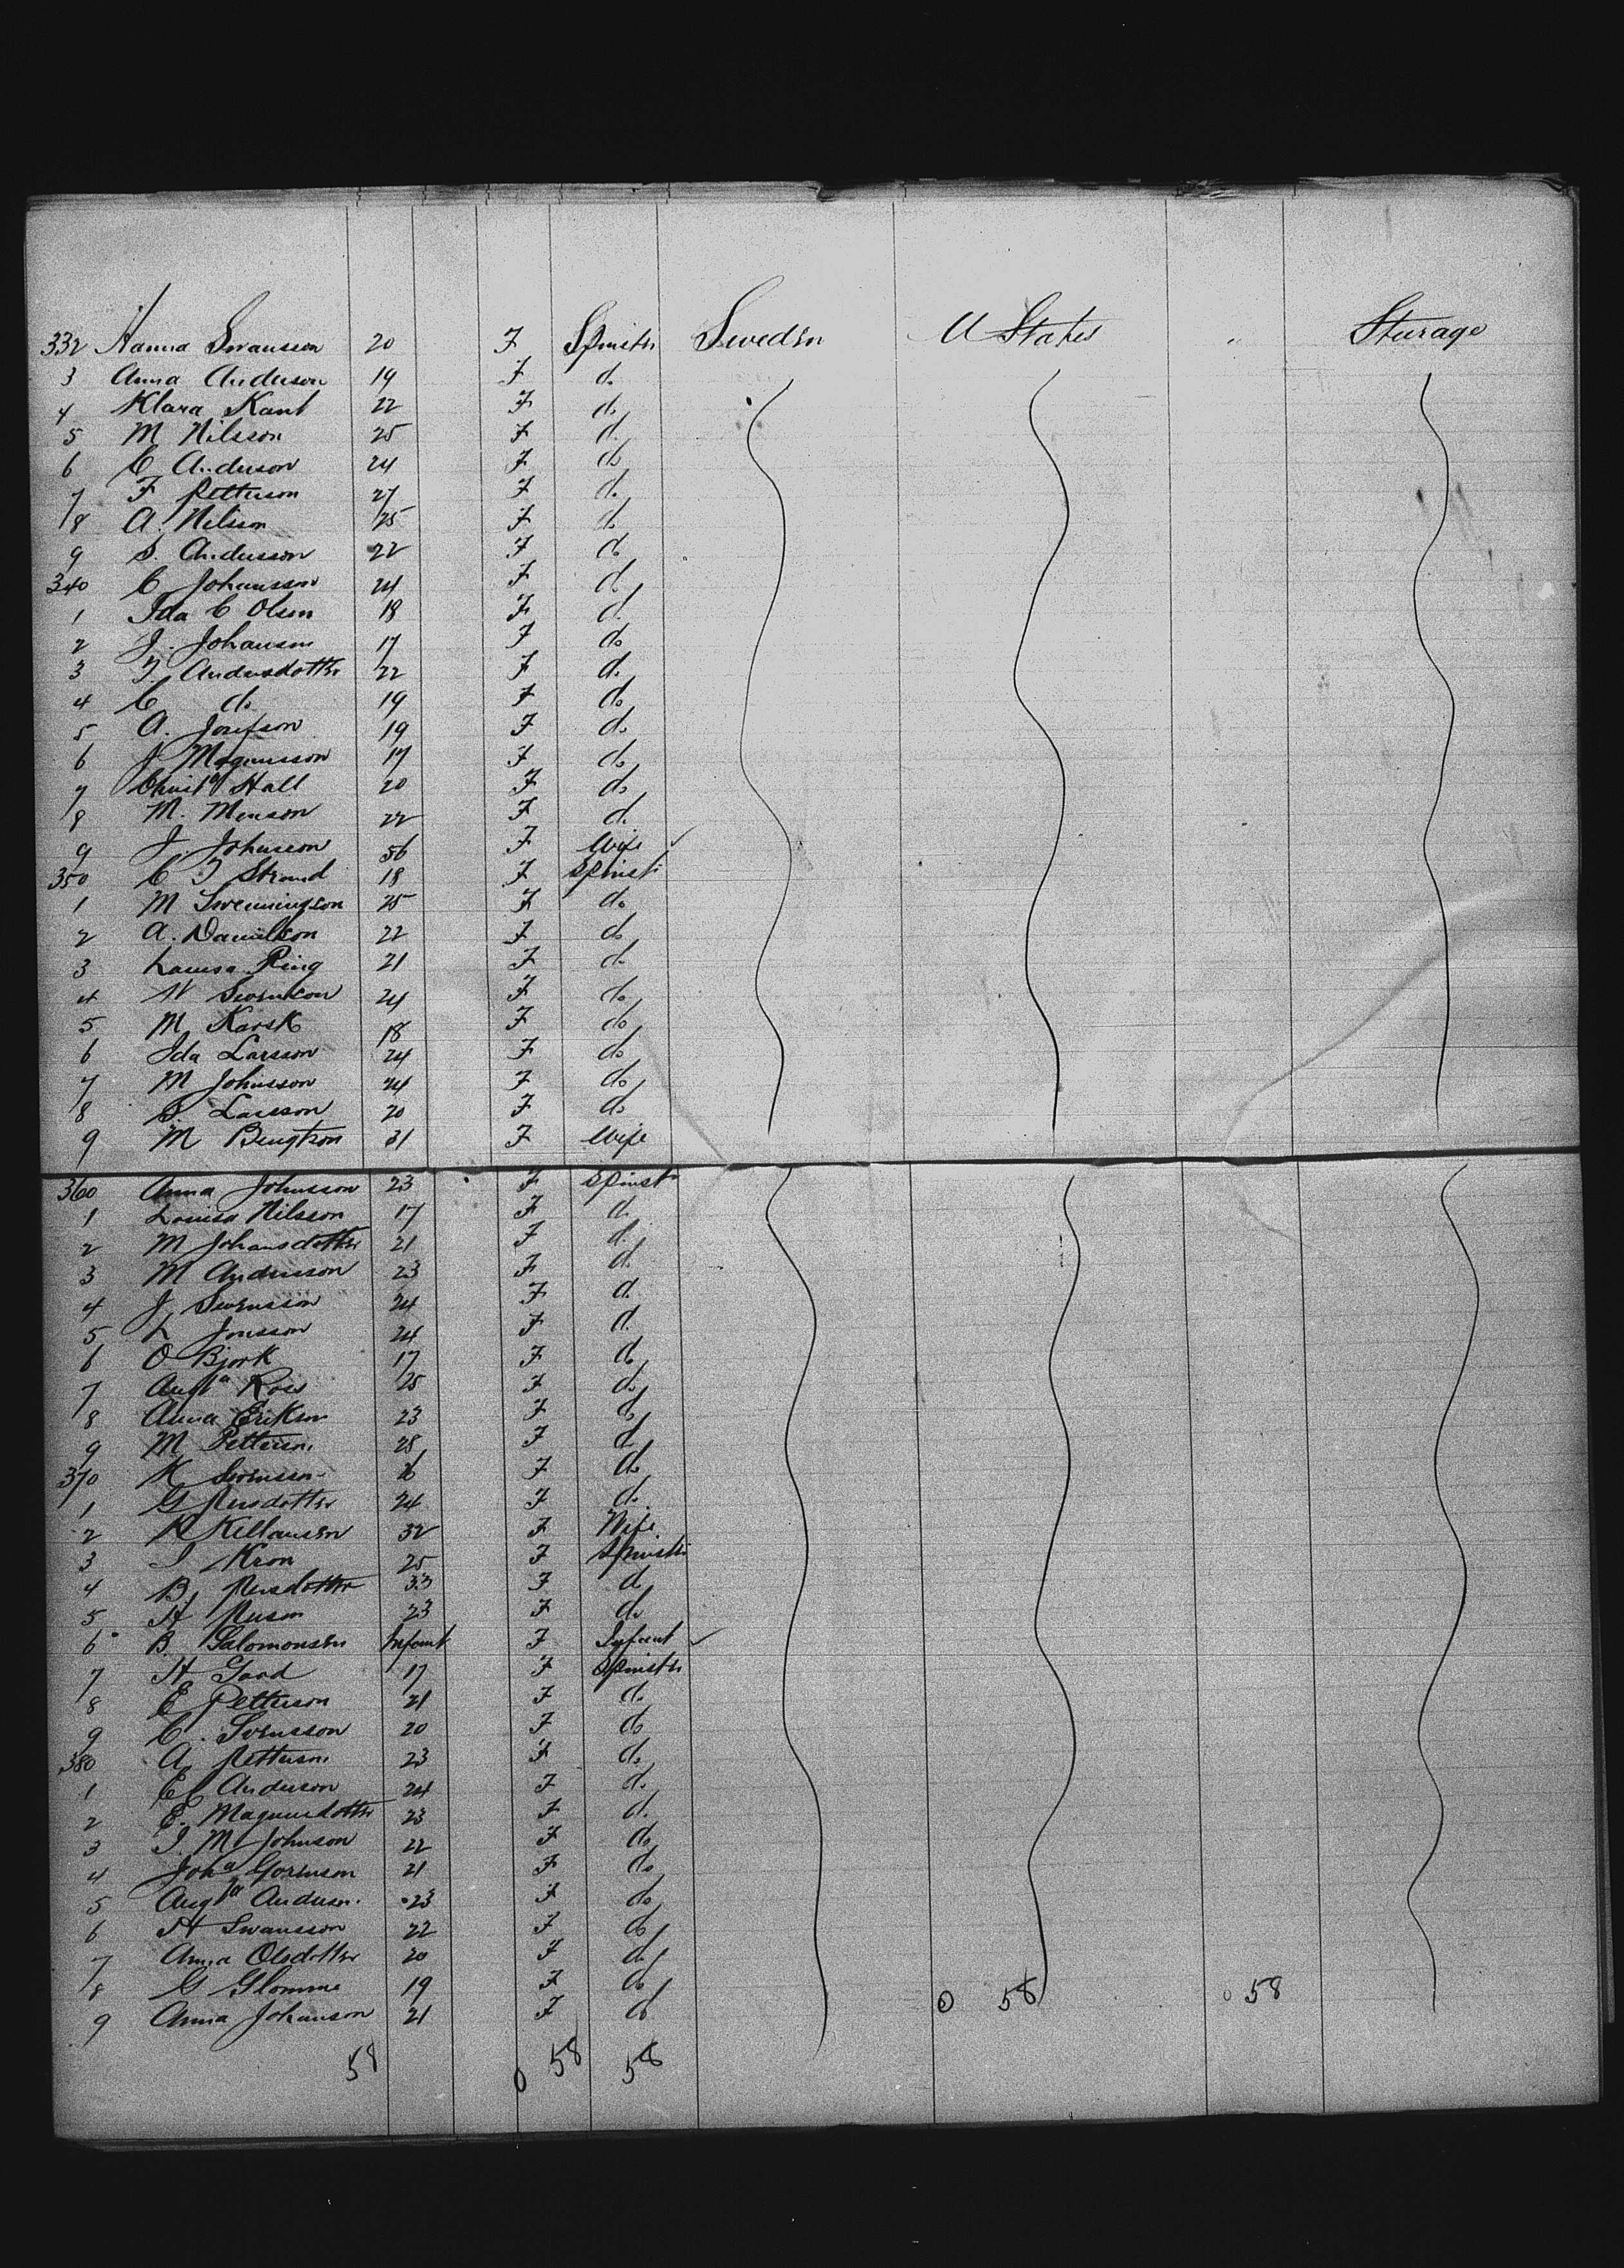 332 Hanna Swansson 20 F Spinstr Sweden U States " Sturage
3 Anna Anderson 19 F do
4 Klara Kant 22 F do
5 M Nilsson 25 F do
6 C Anderson 24 F do
7 F Petterson 27 F do
8 A. Nilsson 25 F do
9 S. Andersson 22 F do
340 C Johansson 24 F do
1 Ida C Olsen 18 F do
2 J. Johanson 17 F do
3 J. Andersdotter 22 F do
4 C do 19 F do
5 A. Josefson 19 F do
6 J Magnusson 19 F do
7 Christa Hall 20 F do
8 M. Monson 22 F do
9 J. Johnsson 56 F Wife
350 C J Strand 18 F Spinstr
1 M Swenningson 25 F do
2 A. Danielson 22 F do
3 Lauisa Ring 21 F do
4 N Swenson 24 F do
5 M Karsk 18 F do
6 Ida Larsson 24 F do
7 M Johnsson 24 F do
8 S. Larsson 20 F do
9 M Bengtson 31 F Wife
360 Anna Johnsson 23 F Spinstr
1 Louisa Nilsson 17 F do
2 M Johansdotter 21 F do
3 M Andersson 23 F do
4 J Swensson 24 F do
5 L Jonsson 24 F do
6 O Bjork 17 F do
7 Augta Ross 25 F do
8 Anna Erikson 23 F do
9 M Petterson 28 F do
370 K Swensson 16 F do
1 G Persdotter 24 F do
2 K Kellausen 32 F Wife
3 I Kron 25 F Spinstr
4 B Persdotter 33 F do
5 H Person 23 F do
6 B. Salomonsen Infant F Infant
7 H Gard 17 F Spinstr
8 E Petterson 21 F do
9 C. Svensson 20 F do
380 A. Petterson 23 F do
1 E Anderson 24 F do
2 E. Magnusdotter 23 F do
3 I. M Johnson 22 F do
4 Joha Gorenson 21 F do
5 Augta Anderson 23 F do
6 H Swansson 22 F do
7 Anna Olsdotter 20 F do
8 G Glomme 19 F do 0 58 0 58
9 Anna Johanson 21 F do
58 0 58 58